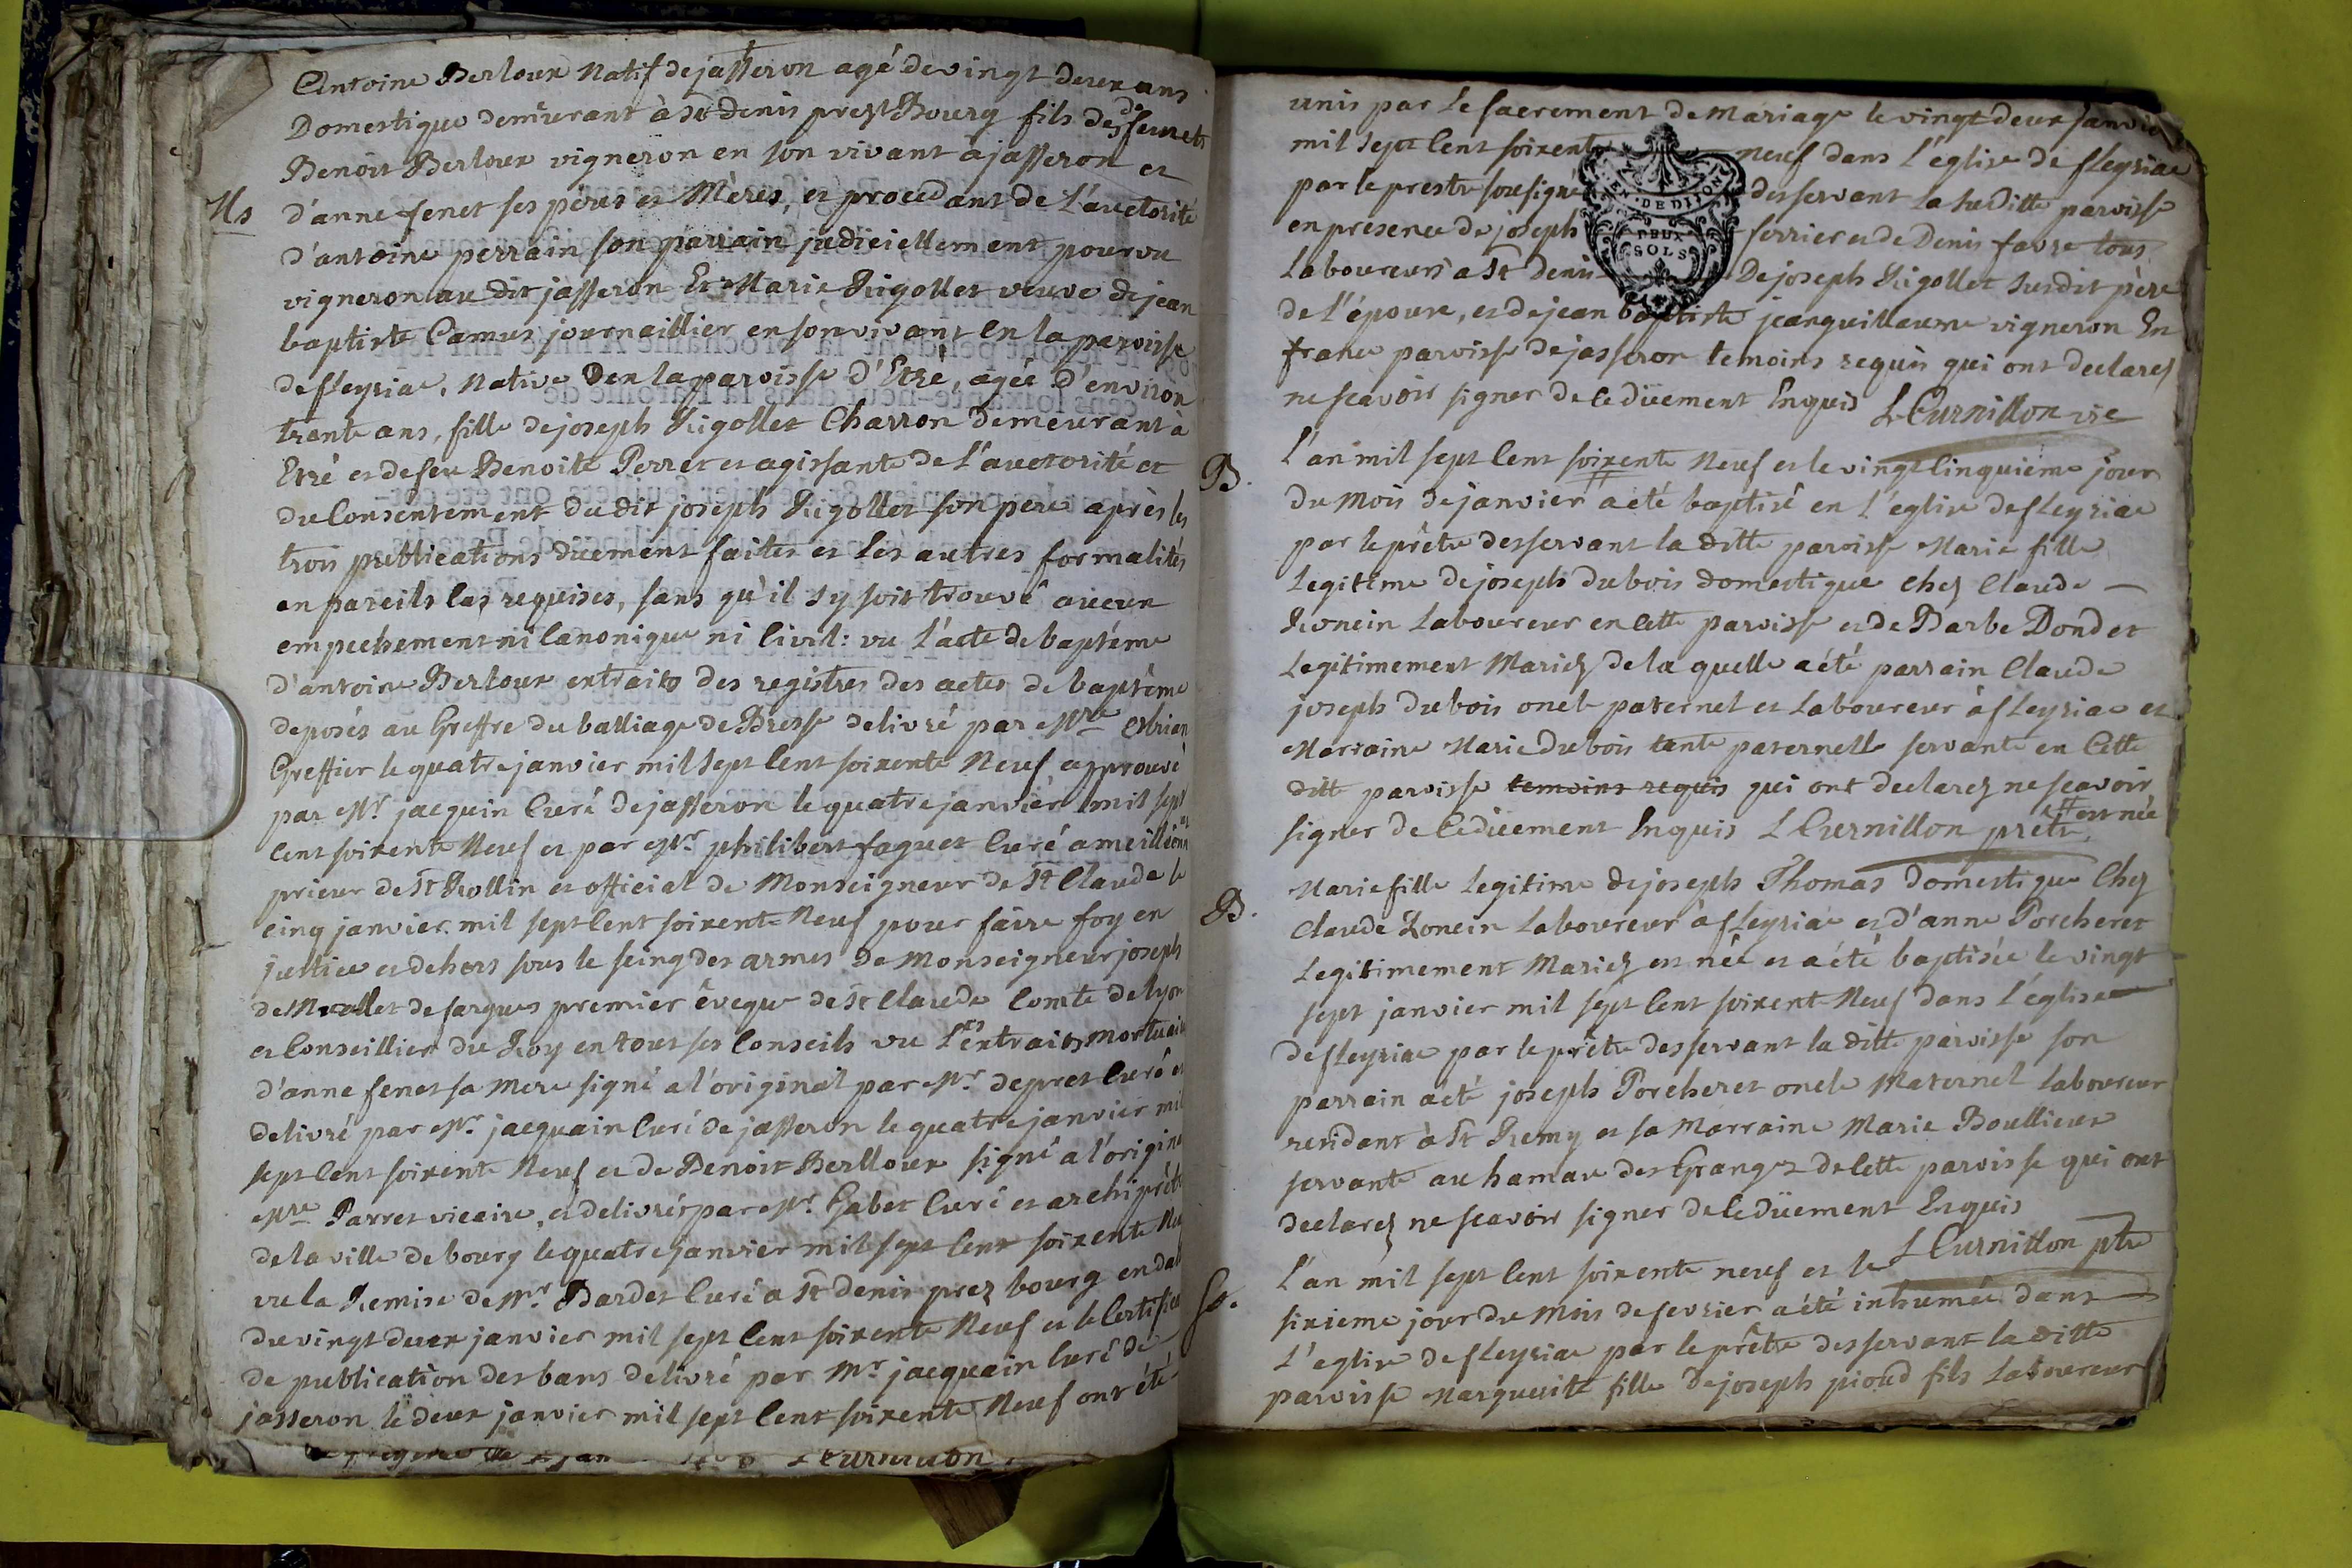 Antoine Berloux Natif de jasseron agé de vingt deux ans
Domestique demeurant à St denis prest Bourg fils des feu et
Benoit Berloux vigneron en son vivant a jasseron et
Ms d'anne fenet ses pères et Mères, et procedant de l'auctorité
d'antoine perrain son parrain judiciellement pourvu
vigneron au dit jasseron Et Marie Rigollet veuve de jean
baptiste Camus journaillier en son vivant en la paroisse
de fleyriac, Native den la paroisse d'Etré, agée d'environ
trante ans, fille de joseph Rigollet Charron demeurant à
Etré et de feu Benoite Perret et agissante de l'auctorité et
du Consentement du dit joseph Rigollet son pere après les
trois publications düement faites et les autres formalités
en pareils cas requises, sans qu'il s'y soit trouvé aucun
empechement ni Canonique ni Civil: vu l'acte de baptéme
d'antoine Berloux extraits des registres des actes de baptéme
deposés au Greffre du balliage de Bresse delivré par Mre
Greffier le quatre janvier mil sept Cent soixente Neuf approuvé
par Mr. jacquin Curé de jasseron le quatre janvier mil sept
Cent soixente Neuf et par Mr philibert faguet Curé a meillionna
prieur de St Rollin et official de Monseigneur de St Claude le
cinq janvier mil sept Cent soixente Neuf pour faire foy en
justice et dehors sous le seing des armes de Monseigneur joseph
de Meallet de fargues premier êveque de St Claude Comte de lyon
et Conseillier du Roy en tous ses Conseils vu l'extraits mortuair
d'anne fenet sa Mere signé a l'original par Mr depret Curé et
delivré par Mr. jacquain Curé de jasseron le quatre janvier mil
sept Cent soixente Neuf et de Benoit Berlloux signé a l'origine
Mre Parret vicaire, et delivrés par Mr Gabet Curé et archiprêtre
de la ville de bourg le quatre janvier mil sept Cent soixente Neuf
vu la Remise de Mr. Bardet Curé a St denis prez bourg en dat
du vingt deux janvier mil sept Cent soixente Neuf et le Certificat
de publication des bans delivré par Mr jacquain Curé de
jasseron le deux janvier mil sept Cent soixente Neuf ont été
L Curnillon
unis par le sacrement de Mariage le vingt deux janvier
mil sept Cent soixente neuf dans l'église de fleyriac
par le prestre sousigné desservant la susditte paroisse
en presence de joseph ferrier et de Denis favre tous
Laboureurs a St denis De joseph Rigollet susdit père
de l'épouse, et de jean baptiste jeanguillaume vigneron En
france paroisse de jasseron temoins requis qui ont declarez
ne scavoir signer de Ce düement Enquis L Curnillon vic
EN. DE DIJON
DEUX
SOLS
B. L'an mil sept Cent soixente Neuf et le vingt Cinquième jour
du Mois de janvier a été baptisé en l'église de fleyriac
par le prêtre desservant la ditte paroisse Marie fille
Legitime de joseph dubois domestique chez Claude
Roncin Laboureur en Cette paroisse et de Barbe Dondet
Legitimement Mariez de la quelle a été parrain Claude
joseph dubois oncle paternel et Laboureur à fleyriac et
Marraine Marie dubois tante paternelle servante en Cette
ditt paroisse temoins requis qui ont declarez ne scavoir
signer de Ce düement Enquis L Curnillon prêtre # est née
B. Marie fille Legitime de joseph Thomas domestique Chez
Claude Roncin Laboureur à fleyriac et d'anne Porcheret
Legitimement Mariez est née et a été baptisée le vingt
sept janvier mil sept Cent soixent Neuf dans l'église
de fleyriac par le prêtre desservant la ditte paroisse son
parrain a été joseph Porcheret oncle Maternel Laboureur
residant à St Remy et sa Marraine Marie Boullieux
servante au hamau des Granges de Cette paroisse qui ont
declarez ne scavoir signer de Ce düement Enquis
L Curnillon ptre
L'an mil sept Cent soixente neuf et le
sixieme jour du Mois de fevrier a été inhumée dans
L'eglise de fleyriac par le prêtre desservant la ditte
paroisse Marguerite fille de joseph pioud fils Laboureur